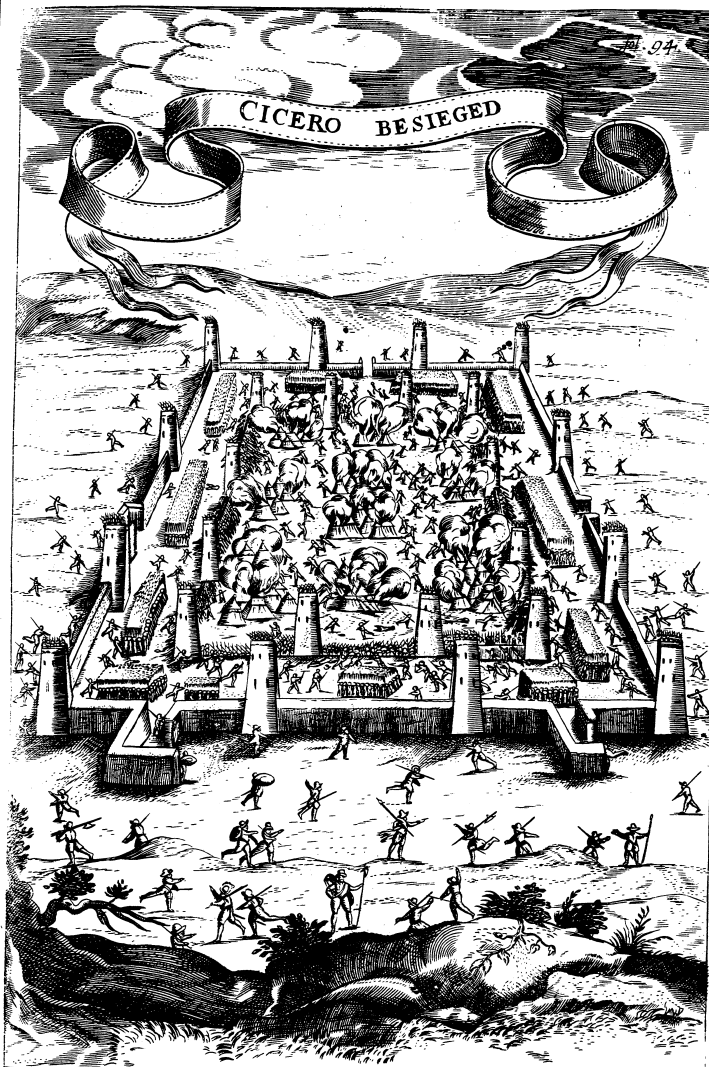 fol. 94.
CICERO BESIEGED